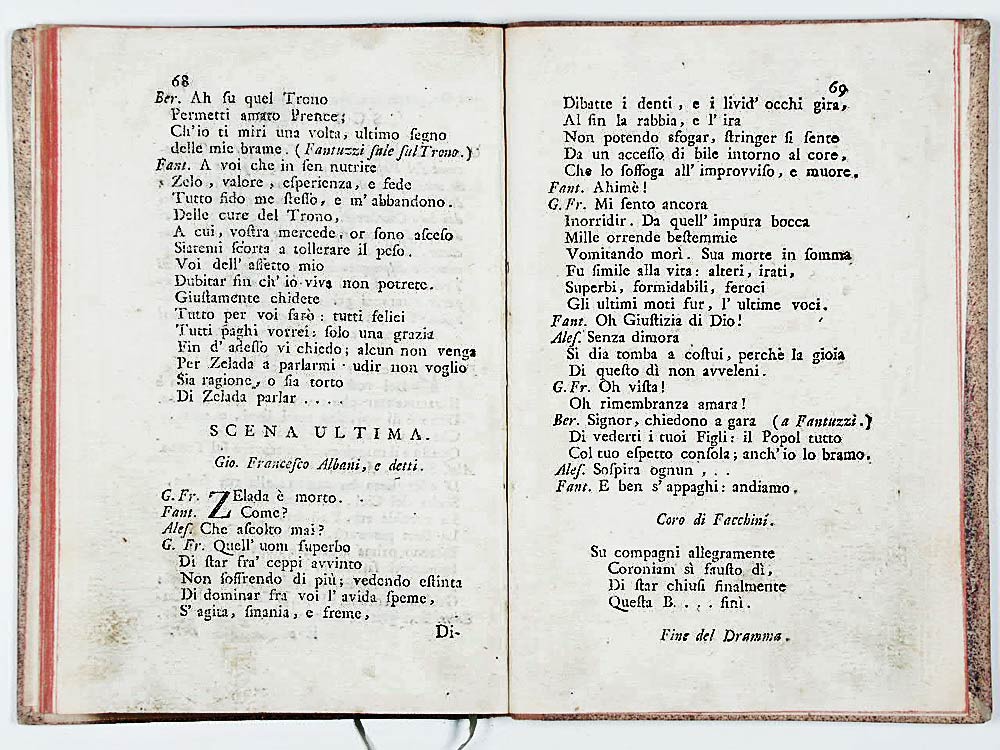 68
Ber. Ah ſu quel Trono
Permetti amato Prence;
Ch'io ti miri una volta, ultimo ſegno
delle mie brame. (Fantuzzi ſale ſul Trono.)
Fant. A voi che in ſen nutrite
Zelo, valore, eſperienza, e fede
Tutto fido me ſteſſo, e m'abbandono.
Delle cure del Trono,
A cui, voſtra mercede, or ſono aſceſo
Siatemi ſcorta a tollerare il peſo.
Voi dell' affetto mio
Dubitar fin ch' io viva non potrete.
Giuſtamente chidete
Tutto per voi farò: tutti felici
Tutti paghi vorrei: ſolo una grazia
Fin d' adeſſo vi chiedo; alcun non venga
Per Zelada a parlarmi · udir non voglio
Sia ragione, o ſia torto
Di Zelada parlar ....
SCENA ULTIMA.
Gio. Franceſco Albani, e detti.
G. Fr. ZElada è morto.
Fant. Come?
Aleſ. Che aſcolto mai?
G. Fr. Quell' uom ſuperbo
Di ſtar fra' ceppi avvinto
Non ſoffrendo di più; vedendo eſtinta
Di dominar fra voi l' avida ſpeme,
S' agita, ſmania, e freme,
Di-
69
Dibatte i denti, e i livid' occhi gira,
Al fin la rabbia, e l' ira
Non potendo sfogar, ſtringer ſi ſente
Da un acceſſo di bile intorno al core,
Che lo ſoffoga all' improvviſo, e muore.
Fant. Ahimè!
G. Fr. Mi ſento ancora
Inorridir. Da quell' impura bocca
Mille orrende beſtemmie
Vomitando morì. Sua morte in ſomma
Fu ſimile alla vita: alteri, irati,
Superbi, formidabili, feroci
Gli ultimi moti fur, l' ultime voci.
Fant. Oh Giuſtizia di Dio!
Aleſ. Senza dimora
Si dia tomba a coſtui, perchè la gioia
Di queſto dì non avveleni.
G. Fr. Oh viſta!
Oh rimembranza amara!
Ber. Signor, chiedono a gara (a Fantuzzi.)
Di vederti i tuoi Figli: il Popol tutto
Col tuo eſpetto conſola; anch'io lo bramo.
Aleſ. Soſpira ognun ...
Fant. E ben s' appaghi: andiamo.
Coro di Facchini.
Su compagni allegramente
Coroniam sì fauſto dì,
Di ſtar chiuſi finalmente
Queſta B.... finì.
Fine del Dramma.